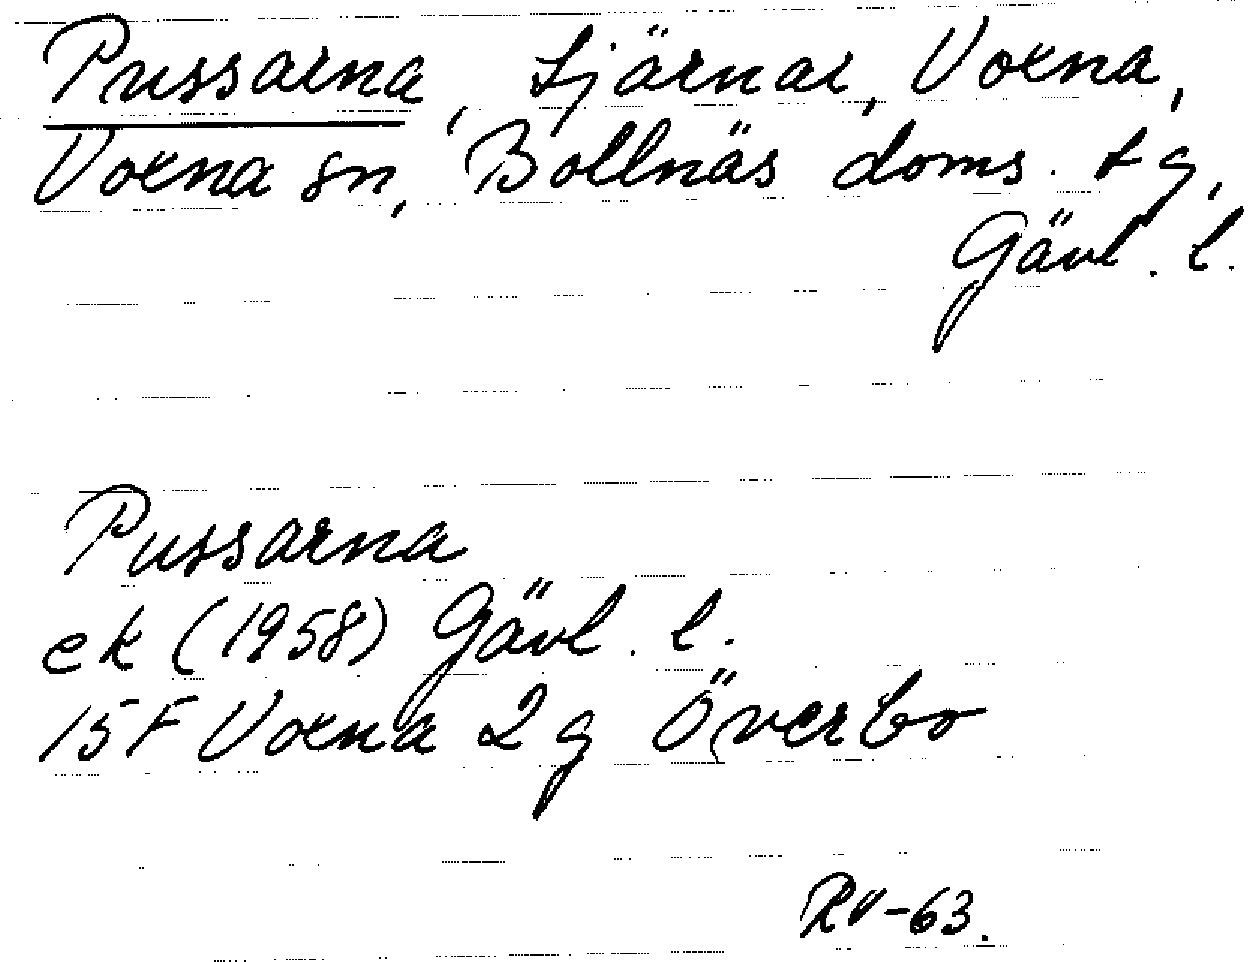 Pussarna, tjärnar, Voxna,
Voxna sn, Bollnäs doms. tg,
Gävl. l.
Pussarna
ek (1958) Gävl. l.
15F Voxna 2g Överbo
RV-63.